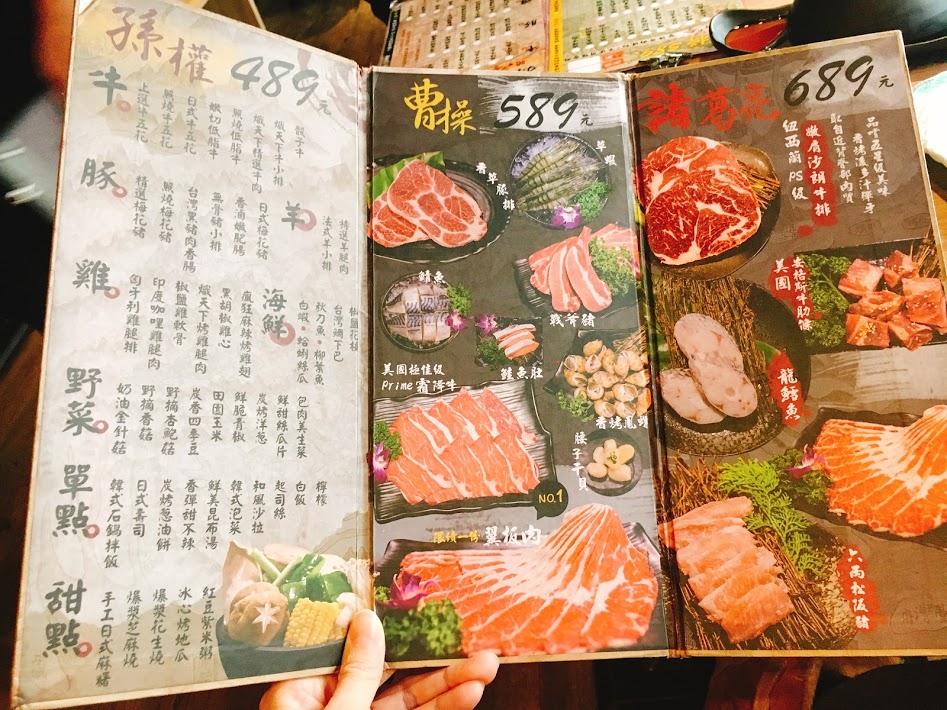 孫權 489元
牛。
骰子牛
熾天下牛小排
熾天下精選牛肉
厚燒低脂牛
嫩切低脂牛
日式牛五花
厚燒牛五花
上選牛五花
羊。
精選羊腿肉
法式羊小排
豚。
日式梅花豬
香滷嫩肥腸
無骨豬小排
台灣黑豬肉香腸
厚燒梅花豬
精選梅花豬
雞。
瘋狂麻辣烤雞翅
黑胡椒雞心
熾天下烤雞腿肉
椒鹽雞軟骨
印度咖哩雞腿肉
匈牙利雞腿排
海鮮。
椒鹽花枝
台灣鯛下巴
秋刀魚·柳葉魚
白蝦·蛤蜊絲瓜
野菜。
包肉美生菜
鮮甜絲瓜片
炭烤洋蔥
鮮脆青椒
田園玉米
炭香四季豆
野摘杏鮑菇
野摘香菇
奶油金針菇
單點。
檸檬
白飯
起司絲
和風沙拉
韓式泡菜
鮮美昆布湯
香彈甜不辣
炭烤蔥油餅
日式壽司
韓式石鍋拌飯
甜點。
紅豆紫米粥
冰心烤地瓜
爆漿花生燒
爆漿芝麻燒
手工日式麻糬
曹操 589元
香草豚排
草蝦
鯖魚
戰斧豬
鮭魚肚
美國極佳級
Prime霜降牛
香烤鳳螺
腰子干貝
NO.1
限續一份 翼板肉
諸葛亮 689元
品嚐五星級美味
香烤後多汁彈牙
取自近背脊部肉質
嫩肩沙朗牛排
紐西蘭PS級
美國
安格斯牛肋條
龍鱈魚
六兩松阪豬